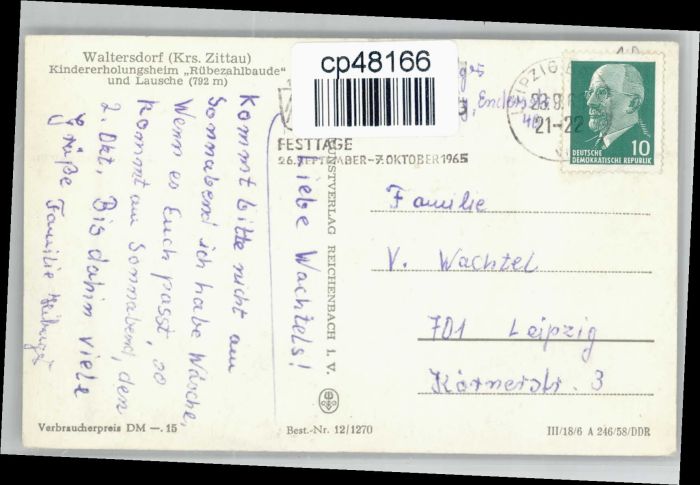 Waltersdorf (Krs. Zittau)
Kindererholungsheim „Rübezahlbaude"
und Lausche (792 m)
cp48166
FESTTAGE
26. SEPTEMBER–7. OKTOBER 1965
LEIPZIG
21-22
10
DEUTSCHE
DEMOKRATISCHE REPUBLIK
Liebe Wachtels!
Kommt bitte nicht am
Sonnabend ich habe Wäsche.
Wenn es Euch passt, so
kommt am Sonnabend, den
2. Okt. Bis dahin viele
Grüße Familie
KUNSTVERLAG REICHENBACH I. V.
Familie
V. Wachtel
701 Leipzig
Körnerstr. 3
Verbraucherpreis DM —.15
Best.-Nr. 12/1270
III/18/6 A 246/58/DDR